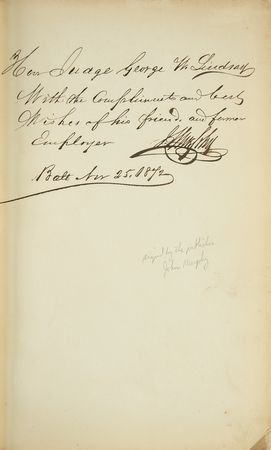 Hon Judge George W. Lindsay
With the Compliments and best
Wishes of his friend, and former
Employer J. Murphy
Balto Nov 25. 1872
signed by the publisher
John Murphy